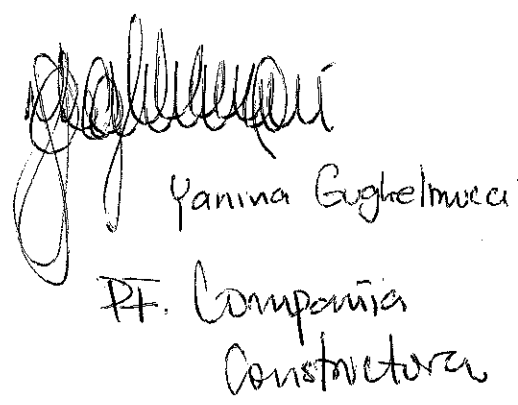 Yanina Guglielmucci
P.F. Compañia
Constructora